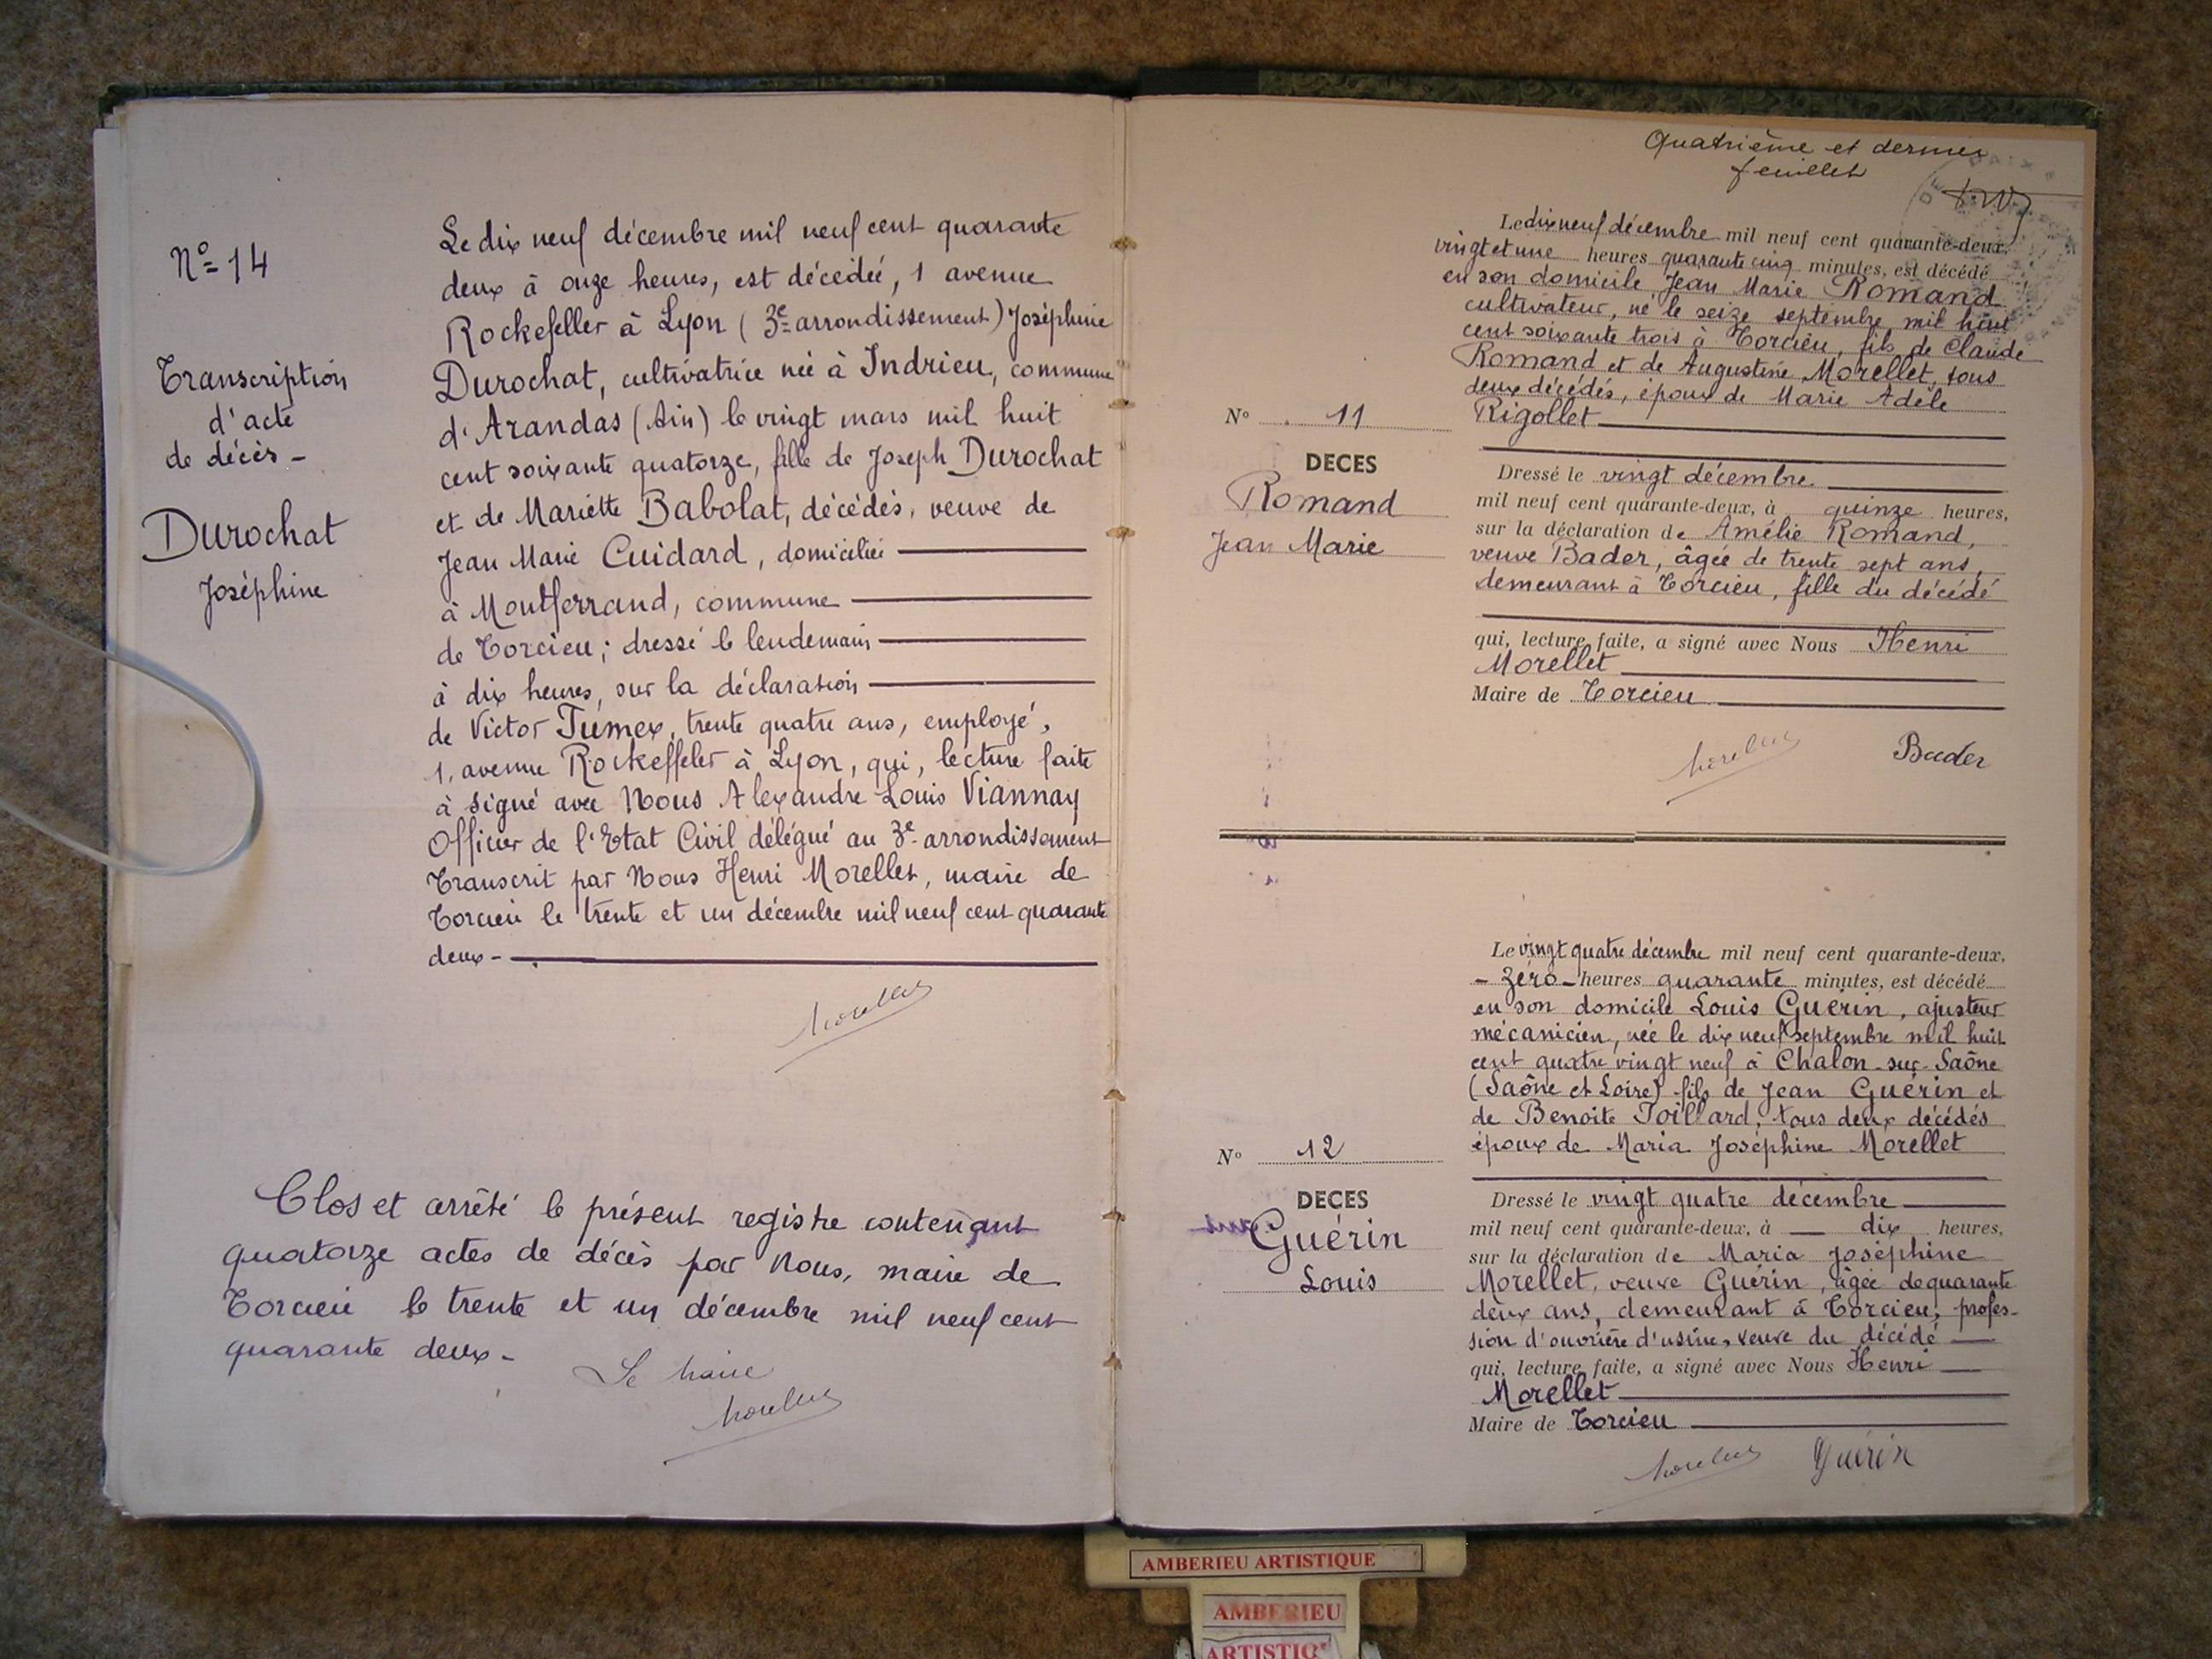 Nº 14
Transcription
d'acte
de décès -
Durochat
Joséphine
Le dix neuf décembre mil neuf cent quarante
deux à onze heures, est décédée, 1 avenue
Rockefeller à Lyon (3e arrondissement) Joséphine
Durochat, cultivatrice née à Indrieu, commune
d'Arandas (Ain) le vingt mars mil huit
cent soixante quatorze, fille de Joseph Durochat
et de Mariette Babolat, décédés, veuve de
Jean Marie Cuidard, domiciliée
à Montferrand, commune
de Torcieu; dressé le lendemain
à dix heures, sur la déclaration
de Victor Tumex, trente quatre ans, employé,
1, avenue Rockeffeler à Lyon, qui, lecture faite
à signé avec Nous Alexandre Louis Viannay
Officier de l'Etat Civil délégué au 3e arrondissement
Transcrit par Nous Henri Morellet, maire de
Torcieu le trente et un décembre mil neuf cent quarante
deux -
Morellet
Clos et arrêté le présent registre contenant
quatorze actes de décès par Nous, maire de
Torcieu le trente et un décembre mil neuf cent
quarante deux -
Le Maire
Morellet
Quatrième et dernier
feuillet
Nº 11
DECES
Romand
Jean Marie
Le dix neuf décembre mil neuf cent quarante-deux,
vingt et une heures quarante cinq minutes, est décédé
en son domicile Jean Marie Romand
cultivateur, né le seize septembre mil huit
cent soixante trois à Torcieu, fils de Claude
Romand et de Augustine Morellet, tous
deux décédés, époux de Marie Adèle
Rigollet
Dressé le vingt décembre
mil neuf cent quarante-deux, à quinze heures,
sur la déclaration de Amélie Romand,
veuve Bader, âgée de trente sept ans,
demeurant à Torcieu, fille du décédé
qui, lecture faite, a signé avec Nous Henri
Morellet
Maire de Torcieu
Morellet Bader
Nº 12
DECES
Guérin
Louis
Le vingt quatre décembre mil neuf cent quarante-deux,
- zéro - heures quarante minutes, est décédé
en son domicile Louis Guérin, ajusteur
mécanicien, née le dix neuf septembre mil huit
cent quatre vingt neuf à Chalon-sur-Saône
(Saône et Loire) fils de Jean Guérin et
de Benoite Toillard, tous deux décédés
époux de Maria Joséphine Morellet
Dressé le vingt quatre décembre
mil neuf cent quarante-deux, à — dix heures,
sur la déclaration de Maria Joséphine
Morellet, veuve Guérin, âgée de quarante
deux ans, demeurant à Torcieu, profes-
sion d'ouvrière d'usine, veuve du décédé
qui, lecture faite, a signé avec Nous Henri
Morellet
Maire de Torcieu
Morellet Guérin
AMBERIEU ARTISTIQUE
AMBERIEU
ARTISTIQ